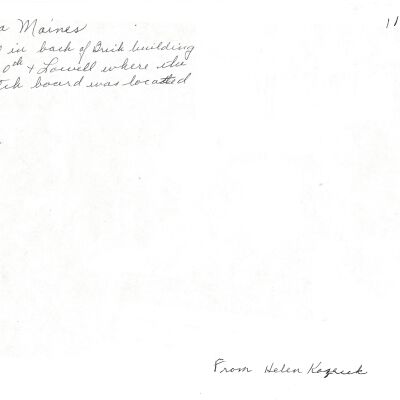 a Maines
in back of Brick building
0th & Lowell where the
tch board was located
11
From Helen